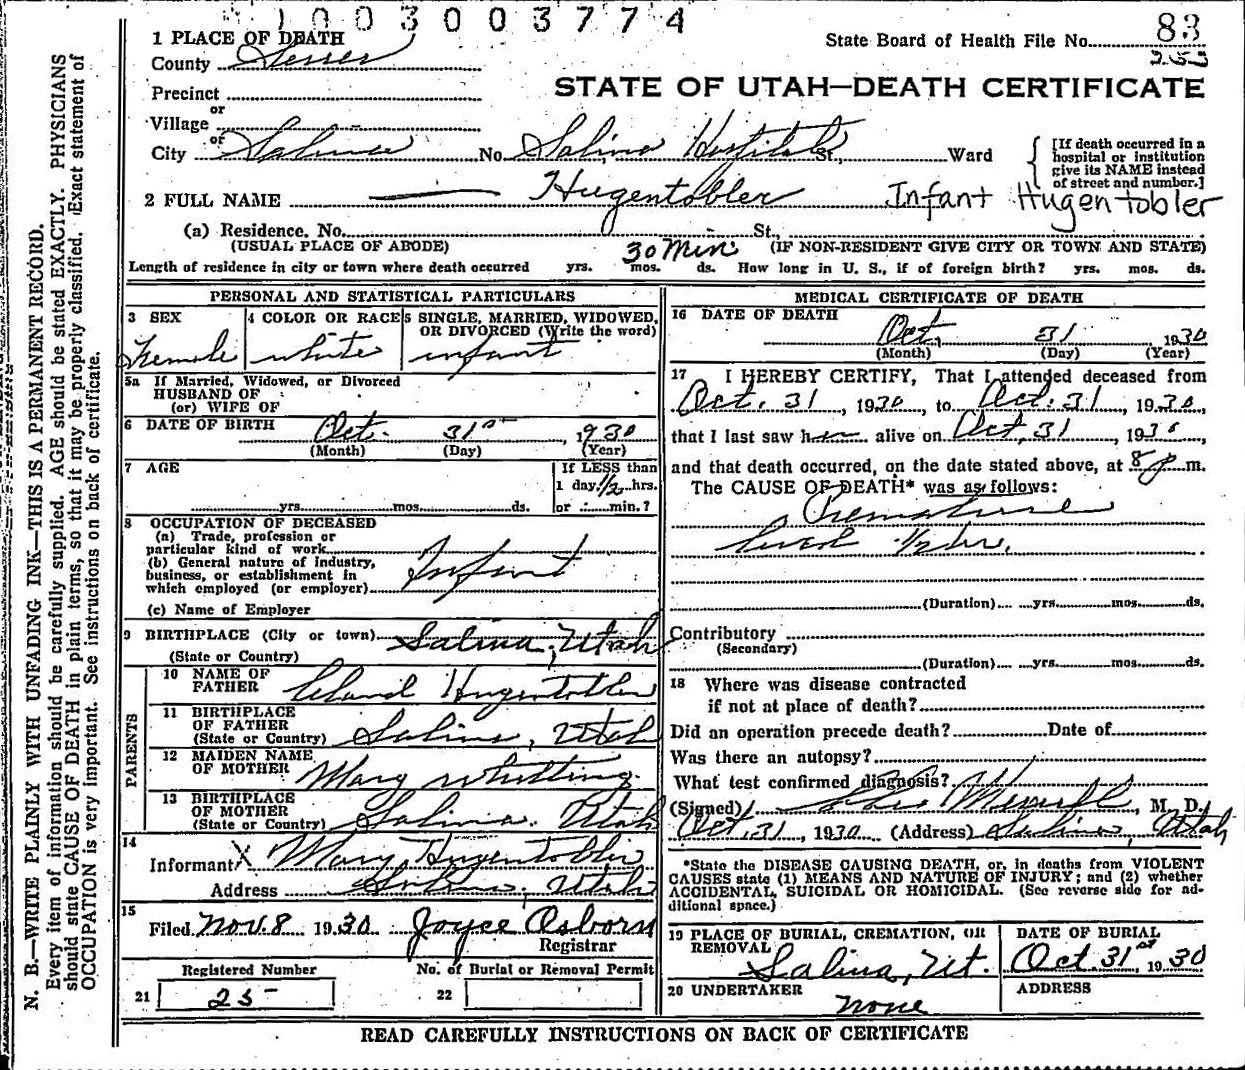 1003003774
1 PLACE OF DEATH
State Board of Health File No. 83
253
County Sevier
STATE OF UTAH—DEATH CERTIFICATE
Precinct
or
Village
or
City Salina No. Salina Hospital St., Ward
[If death occurred in a
hospital or institution
give its NAME instead
of street and number.]
2 FULL NAME Hugentobler Infant Hugentobler
(a) Residence. No. St.,
(USUAL PLACE OF ABODE) 30 Min. (IF NON-RESIDENT GIVE CITY OR TOWN AND STATE)
Length of residence in city or town where death occurred yrs. mos. ds. How long in U. S., if of foreign birth? yrs. mos. ds.
PERSONAL AND STATISTICAL PARTICULARS
3 SEX
Female
4 COLOR OR RACE
white
5 SINGLE, MARRIED, WIDOWED,
OR DIVORCED (Write the word)
infant
5a If Married, Widowed, or Divorced
HUSBAND OF
(or) WIFE OF
6 DATE OF BIRTH Oct. 31st, 1930
(Month) (Day) (Year)
7 AGE
yrs. mos. ds.
If LESS than
1 day 1/2 hrs.
or min.?
8 OCCUPATION OF DECEASED
(a) Trade, profession or
particular kind of work
(b) General nature of industry,
business, or establishment in
which employed (or employer)
Infant
(c) Name of Employer
9 BIRTHPLACE (City or town) Salina, Utah
(State or Country)
PARENTS
10 NAME OF
FATHER Hugentobler
11 BIRTHPLACE
OF FATHER
(State or Country) Salina, Utah
12 MAIDEN NAME
OF MOTHER Mary Whitting
13 BIRTHPLACE
OF MOTHER
(State or Country) Salina, Utah
14
Informant X Mary Hugentobler
Address Salina, Utah
15
Filed Nov. 8 1930 Joyce Osborn
Registrar
Registered Number No. of Burial or Removal Permit
21 25 22
MEDICAL CERTIFICATE OF DEATH
16 DATE OF DEATH
Oct. 31 1930
(Month) (Day) (Year)
17 I HEREBY CERTIFY, That I attended deceased from
Oct. 31, 1930, to Oct. 31, 1930,
that I last saw her alive on Oct, 31, 1930,
and that death occurred, on the date stated above, at 8 p m.
The CAUSE OF DEATH* was as follows:
Premature
lived 1/2 hr.
(Duration) yrs. mos. ds.
Contributory
(Secondary)
(Duration) yrs. mos. ds.
18 Where was disease contracted
if not at place of death?
Did an operation precede death? Date of
Was there an autopsy?
What test confirmed diagnosis?
(Signed) M. D.
Oct. 31, 1930 (Address) Salina, Utah
*State the DISEASE CAUSING DEATH, or, in deaths from VIOLENT
CAUSES state (1) MEANS AND NATURE OF INJURY; and (2) whether
ACCIDENTAL, SUICIDAL OR HOMICIDAL. (See reverse side for ad-
ditional space.)
19 PLACE OF BURIAL, CREMATION, OR
REMOVAL Salina, Ut.
DATE OF BURIAL
Oct. 31st, 1930
20 UNDERTAKER
none
ADDRESS
READ CAREFULLY INSTRUCTIONS ON BACK OF CERTIFICATE
N. B.—WRITE PLAINLY WITH UNFADING INK—THIS IS A PERMANENT RECORD.
Every item of information should be carefully supplied. AGE should be stated EXACTLY. PHYSICIANS
should state CAUSE OF DEATH in plain terms, so that it may be properly classified. Exact statement of
OCCUPATION is very important. See instructions on back of certificate.